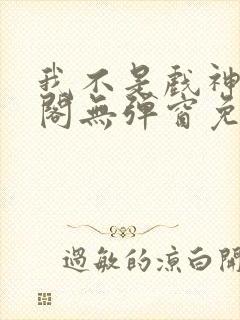 我不是戲神
閣無彈窗免
過敏的涼白開